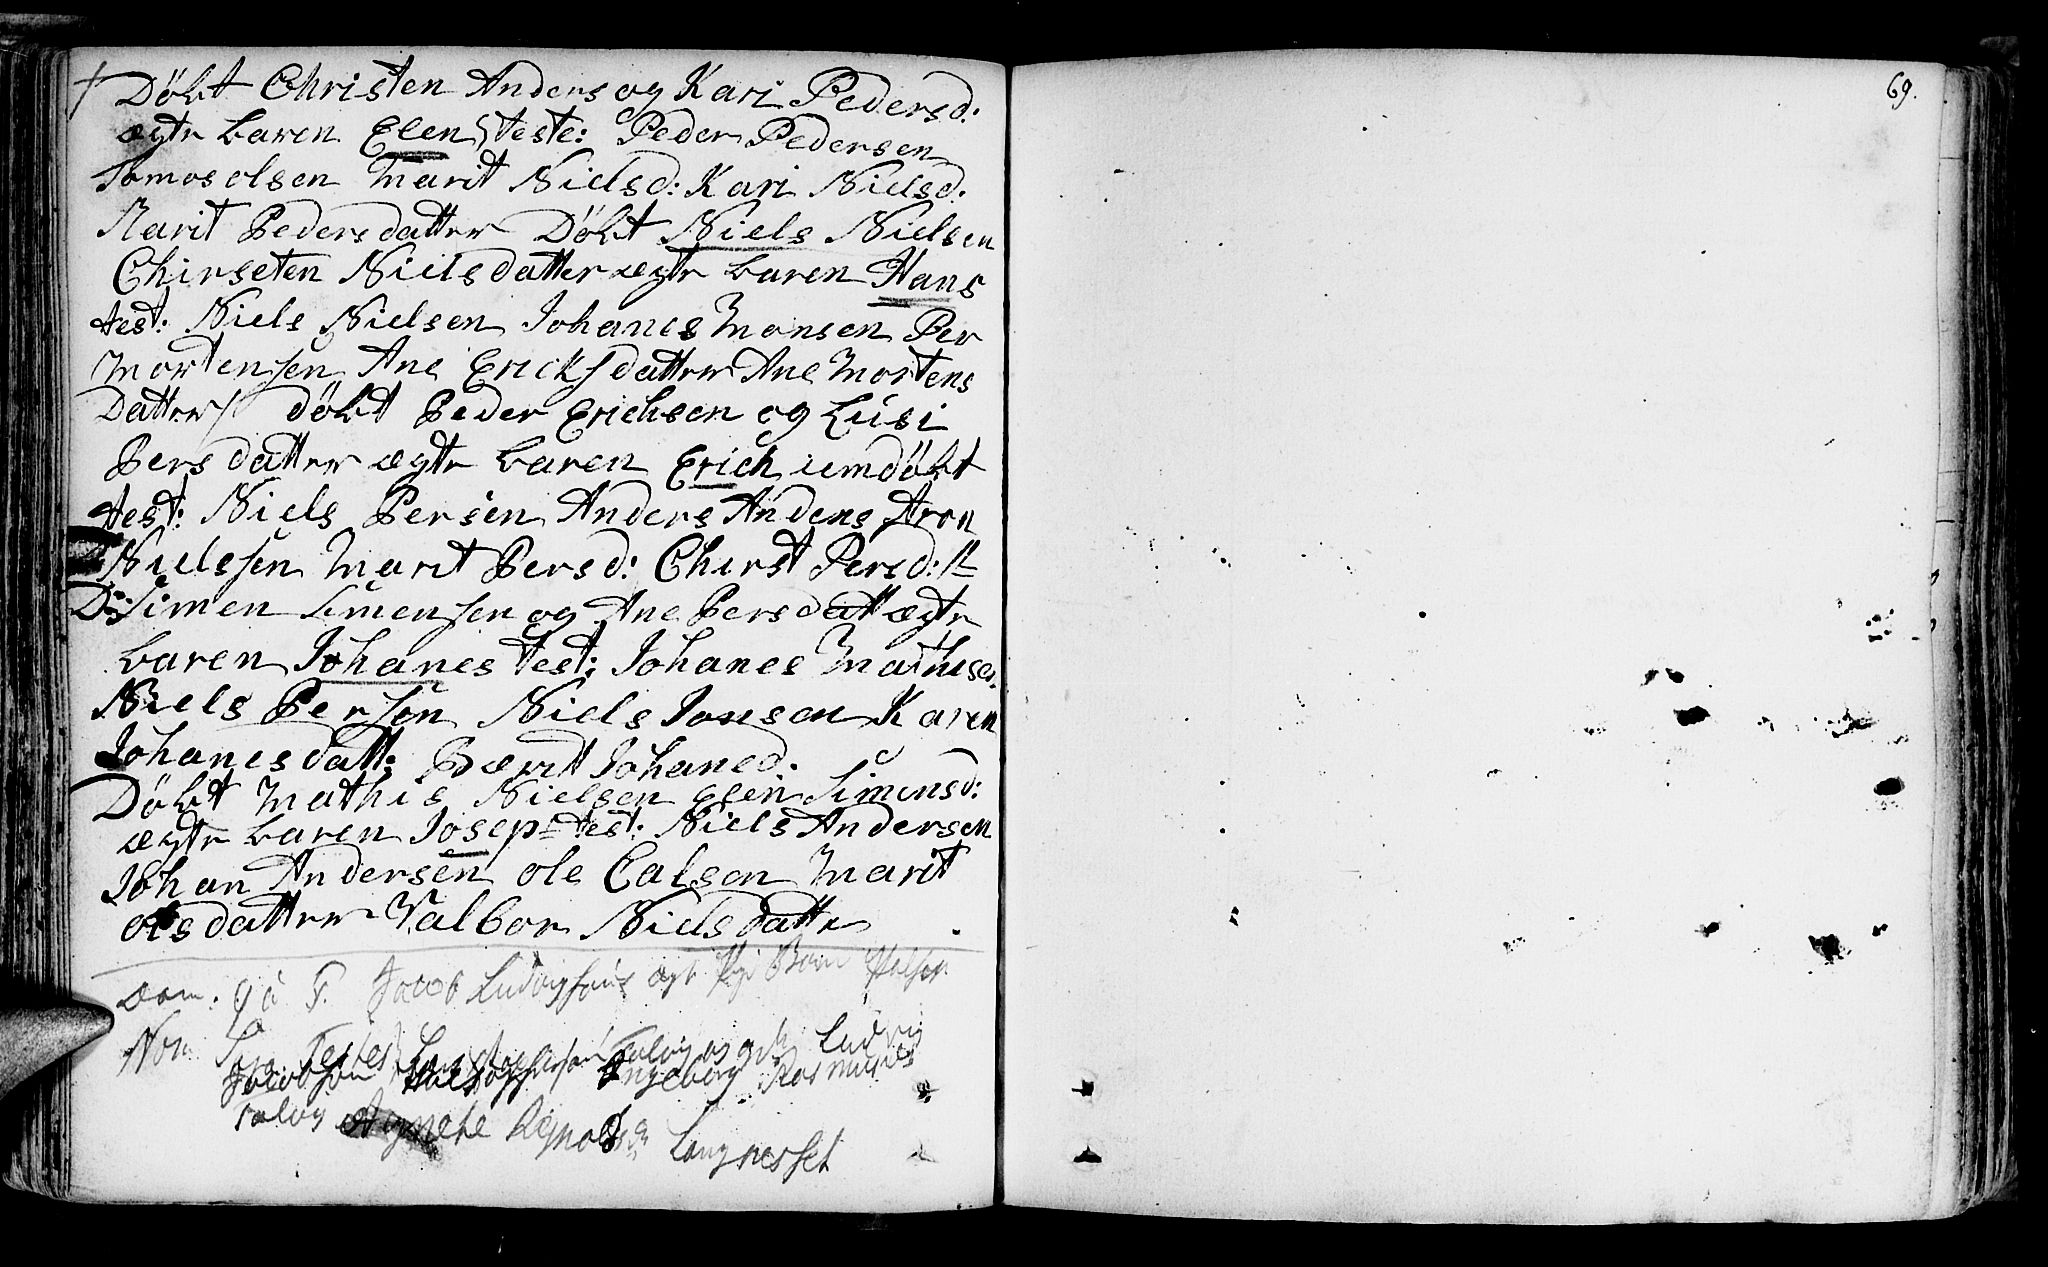 Döbt Christen Anders og Kari Pedersd:
ægtr baren Elen teste: Peder Pedersen
Tomos olsen Marit Nielsd: Kari Nielsd:
Marit Pedersdatter Döbt Niels Nielsen
Chirseten Nielsdatter ægtr baren Hans
test: Niels Nielsen Johanes Monsen Per
Mortensen Ane Ericksdatter Ane Mortens
Datter döbt Peder Erichsen og Lusi
Persdatter ægtr baren Erich iemdöbt
test: Niels Persen Anders Andens Aron
Nielssen Marit Persd: Chirst Persd:
D: Simen Simensen og Ane Persdatt ægtr
baren Johanes test: Johanes Mathise
Niels Persen Niels Jonsen Karen
Johanesdatt: Bærit Johaned:
Döbt Mathis Nielsen Elen Simensd:
ægtr baren Josep test: Niels Andersen
Johan Andersen ole Calsen Marit
olsdatter Valbor Nielsdattr
Dom: Jacob Ludvigsens ægt Barn
Non Ludvig
Jacobsen Ingeborg Rasmus
Agnete Langnesset
69.